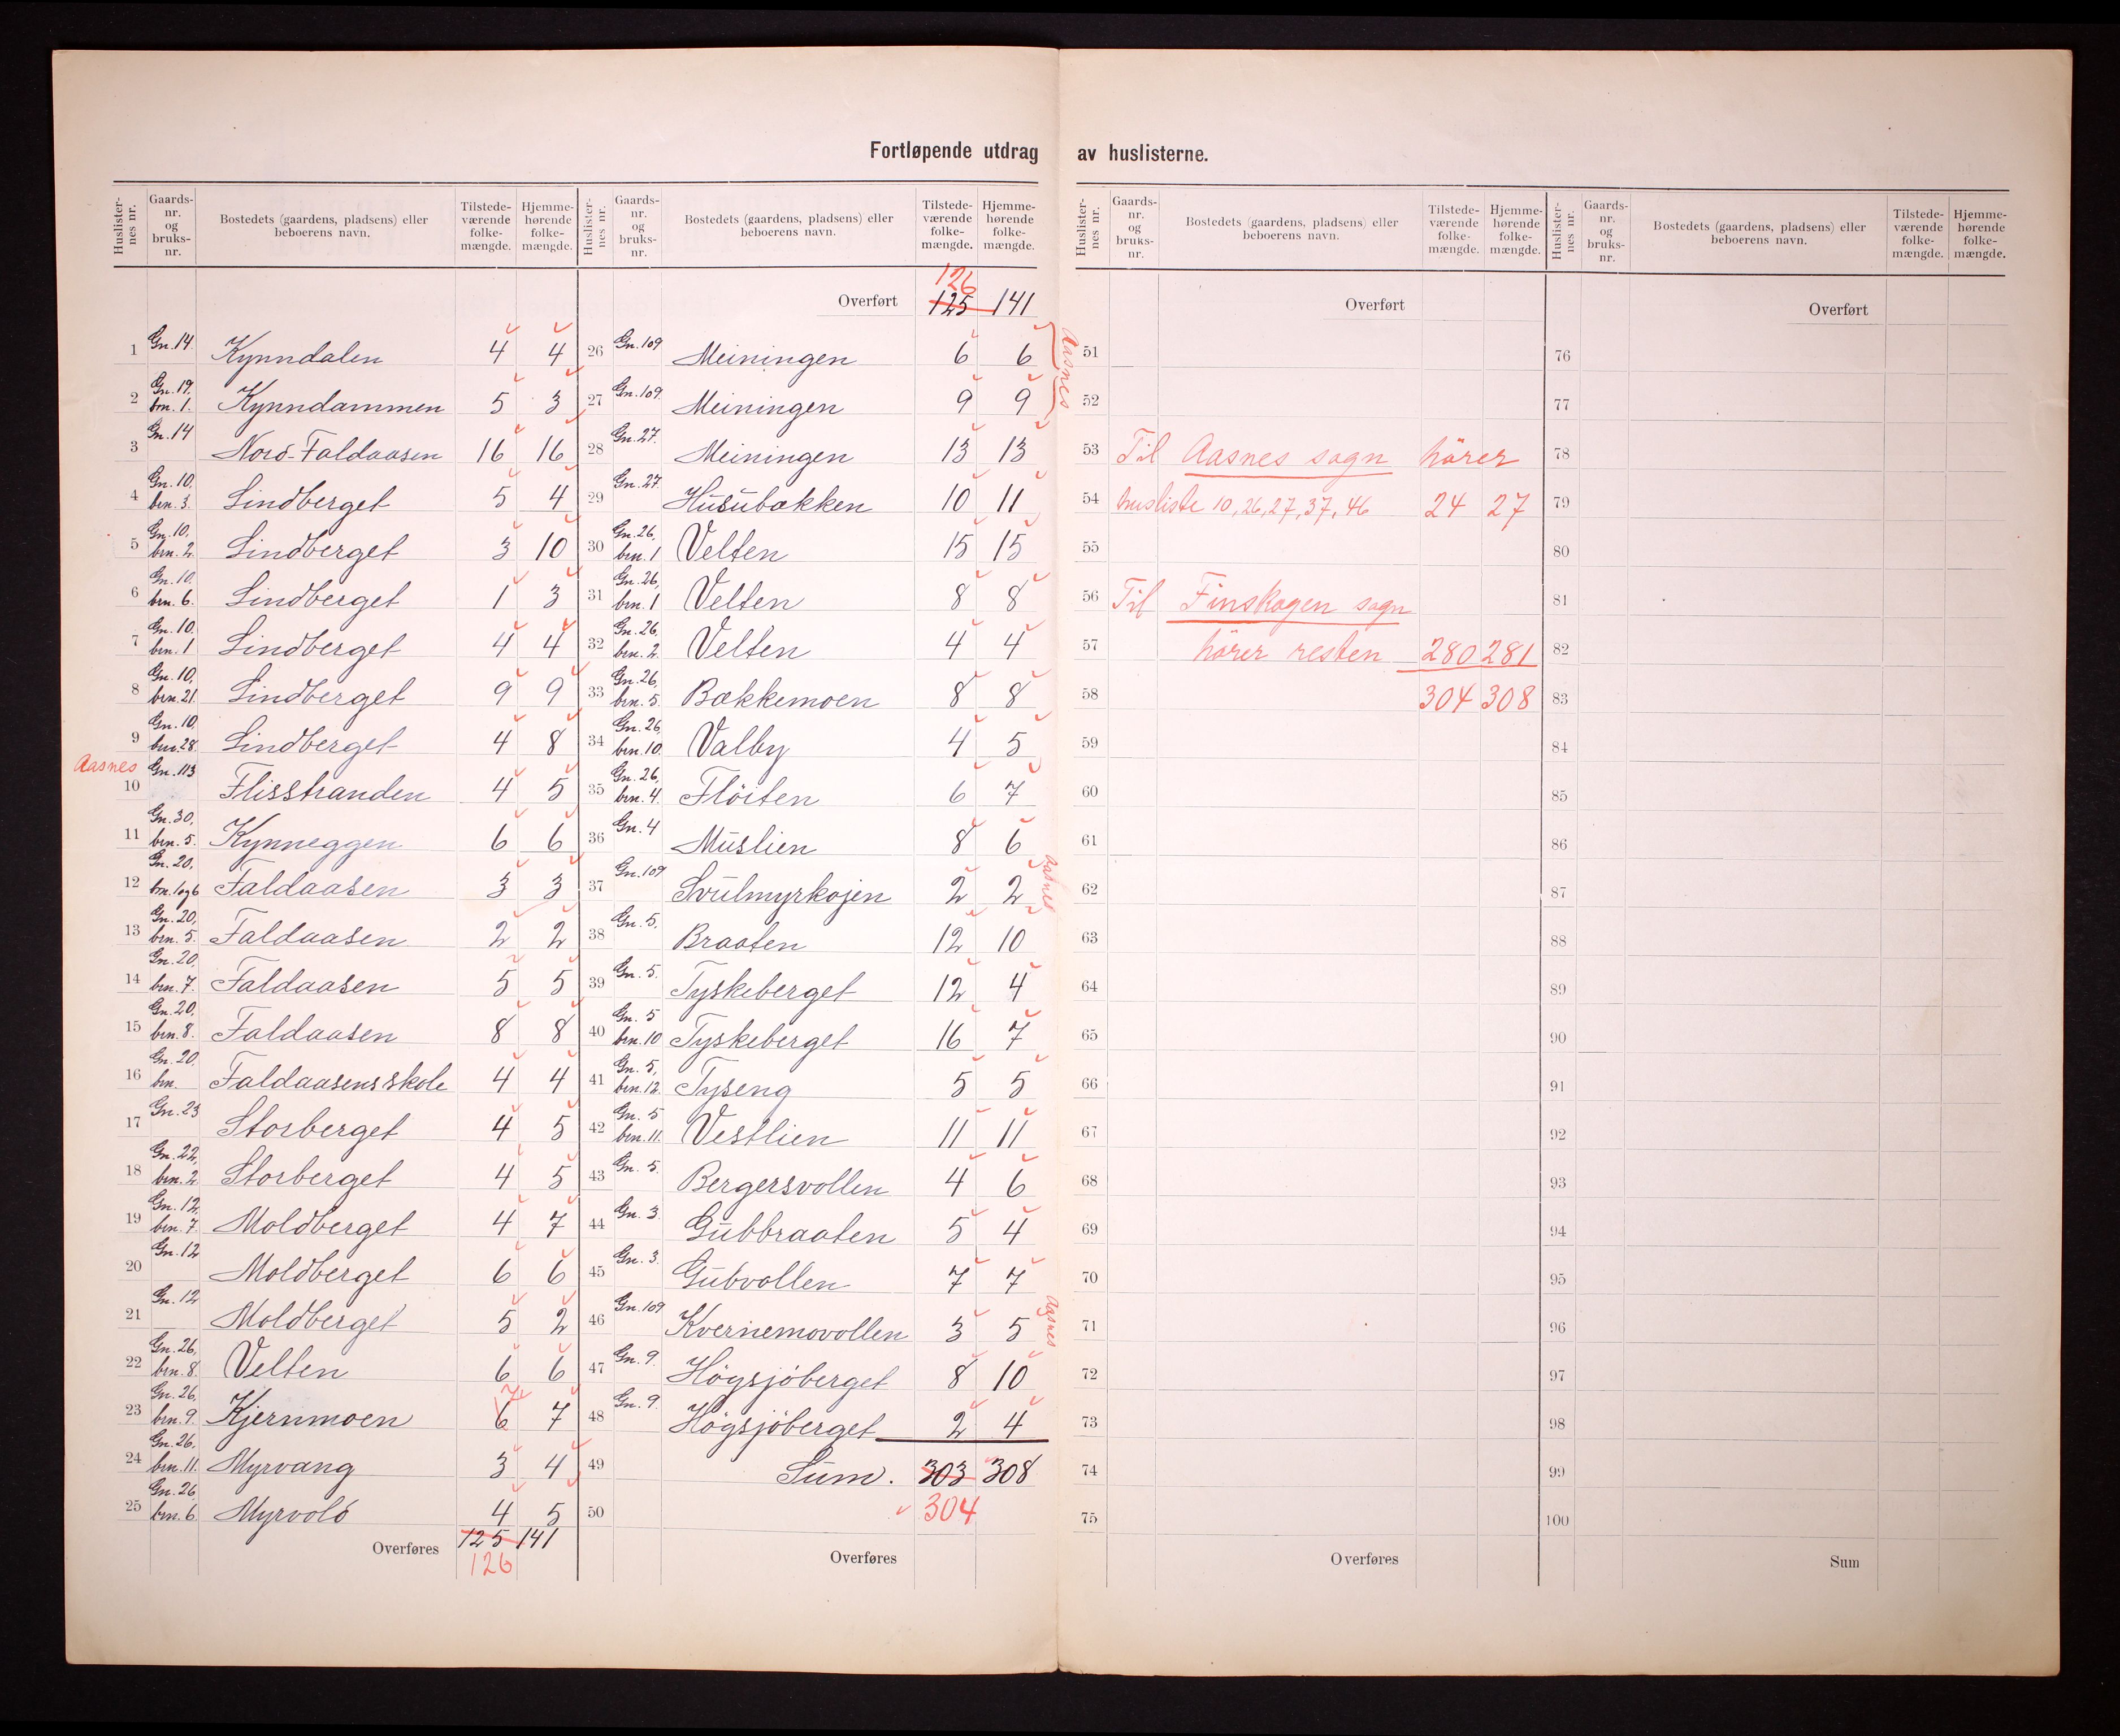 Fortløpende utdrag av huslisterne.
Huslisternes nr. Gaards-nr. og bruks-nr. Bostedets (gaardens, pladsens) eller beboerens navn. Tilstedeværende folkemængde. Hjemmehørende folkemængde.
1 Gn. 14. Kynndalen 4 4
2 Gn. 19, brn. 1. Kynndammen 5 3
3 Gn. 14 Nord-Faldaasen 16 16
4 Gn. 10, brn. 3. Lindberget 5 4
5 Gn. 10, brn. 2. Lindberget 3 10
6 Gn. 10. brn. 6. Lindberget 1 3
7 Gn. 10. brn. 1 Lindberget 4 4
8 Gn. 10, brn. 21. Lindberget 9 9
9 Gn. 10, brn. 28. Lindberget 4 8
Aasnes
10 Gn. 113 Flisstranden 4 5
11 Gn. 30, brn. 5. Kynneggen 6 6
12 Gn. 20, brn. 1 og 6 Faldaasen 3 3
13 Gn. 20, brn. 5. Faldaasen 2 2
14 Gn. 20, brn. 7. Faldaasen 5 5
15 Gn. 20, brn. 8. Faldaasen 8 8
16 Gn. 20 brn. Faldaasens skole 4 4
17 Gn. 23 Storberget 4 5
18 Gn. 22, brn. 2 Storberget 4 5
19 Gn. 12, brn. 7. Moldberget 4 7
20 Gn. 12 Moldberget 6 6
21 Gn. 12 Moldberget 5 2
22 Gn. 26, brn. 8. Velten 6 6
23 Gn. 26, brn. 9. Kjernmoen 6 7 7
24 Gn. 26, brn. 11. Myrvang 3 4
25 Gn. 26 brn. 6 Myrvold 4 5
Overføres 125 141
126
Huslisternes nr. Gaards-nr. og bruks-nr. Bostedets (gaardens, pladsens) eller beboerens navn. Tilstedeværende folkemængde. Hjemmehørende folkemængde.
126
Overført 125 141
26 Gn. 109 Meiningen 6 6
Aasnes
27 Gn. 109. Meiningen 9 9
28 Gn. 27. Meiningen 13 13
29 Gn. 27. Husubækken 10 11
30 Gn. 26, brn. 1 Velten 15 15
31 Gn. 26, brn. 1 Velten 8 8
32 Gn. 26, brn. 2. Velten 4 4
33 Gn. 26, brn. 5. Bækkemoen 8 8
34 Gn. 26 brn. 10. Valby 4 5
35 Gn. 26, brn. 4. Flöiten 6 7
36 Gn. 4 Muslien 8 6
37 Gn. 109 Svulmyrkojen 2 2 Aasnes
38 Gn. 5. Braaten 12 10
39 Gn. 5. Tyskeberget 12 4
40 Gn. 5 brn. 10 Tyskeberget 16 7
41 Gn. 5, brn. 12. Tyseng 5 5
42 Gn. 5 brn. 11. Vestlien 11 11
43 Gn. 5. Bergersvollen 4 6
44 Gn. 3. Gubbraaten 5 4
45 Gn. 3. Gubvollen 7 7
46 Gn. 109 Kvernemovollen 3 5 Aasnes
47 Gn. 9. Högsjöberget 8 10
48 Gn. 9. Högsjöberget 2 4
49 Sum. 303 308
50 304
Overføres
Huslisternes nr. Gaards-nr. og bruks-nr. Bostedets (gaardens, pladsens) eller beboerens navn. Tilstedeværende folkemængde. Hjemmehørende folkemængde.
Overført
51
52
53 Til Aasnes sogn hörer
54 husliste 10, 26, 27, 37, 46 24 27
55
56 Til Finskogen sogn
57 hörer resten 280 281
58 304 308
59
60
61
62
63
64
65
66
67
68
69
70
71
72
73
74
75
Overføres
Huslisternes nr. Gaards-nr. og bruks-nr. Bostedets (gaardens, pladsens) eller beboerens navn. Tilstedeværende folkemængde. Hjemmehørende folkemængde.
Overført
76
77
78
79
80
81
82
83
84
85
86
87
88
89
90
91
92
93
94
95
96
97
98
99
100
Sum